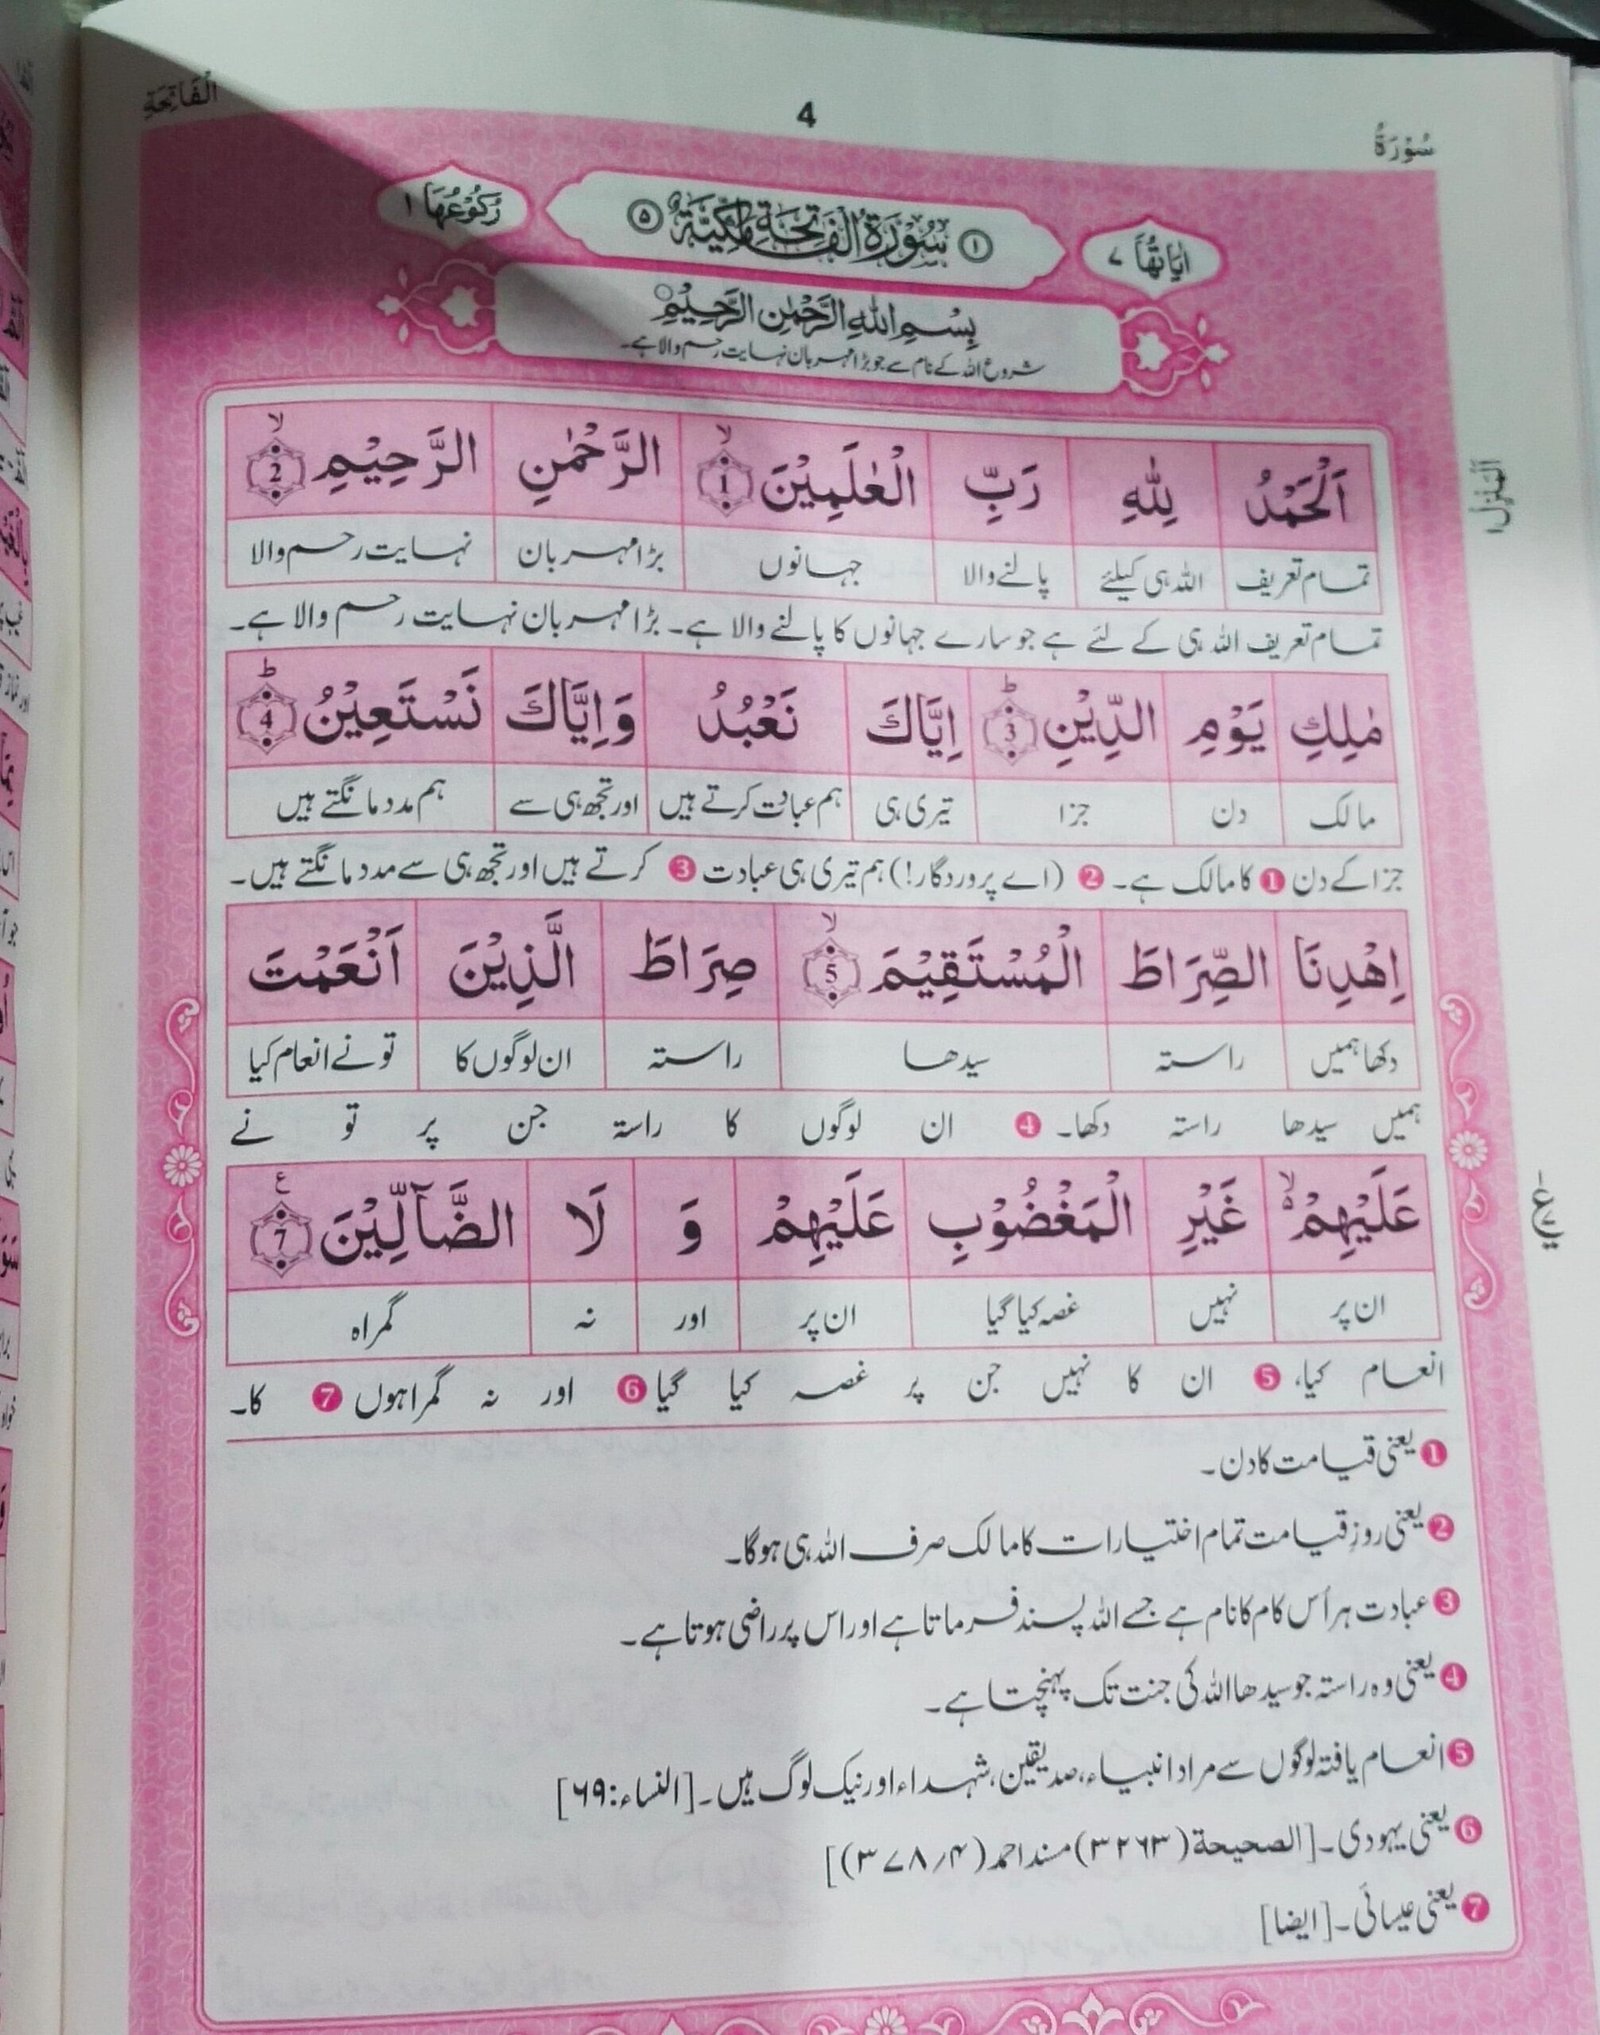 سُوْرَةُ 4 اَلْفَاتِحَةِ
اٰیَاتُهَا ۷ ① سُوْرَةُ الْفَاتِحَةِ مَكِّيَّةٌ ⑤ رُكُوْعُهَا ۱
بِسْمِ اللهِ الرَّحْمٰنِ الرَّحِيْمِ
شروع اللہ کے نام سے جو بڑا مہربان نہایت رحم والا ہے۔
اَلْحَمْدُ لِلّٰهِ رَبِّ الْعٰلَمِيْنَ ۙ 1 الرَّحْمٰنِ الرَّحِيْمِ ۙ 2
تمام تعریف اللہ ہی کیلئے پالنے والا جہانوں بڑا مہربان نہایت رحم والا
تمام تعریف اللہ ہی کے لئے ہے جو سارے جہانوں کا پالنے والا ہے۔ بڑا مہربان نہایت رحم والا ہے۔
مٰلِكِ يَوْمِ الدِّيْنِ ۭ 3 اِيَّاكَ نَعْبُدُ وَاِيَّاكَ نَسْتَعِيْنُ ۭ 4
مالک دن جزا تیری ہی ہم عبادت کرتے ہیں اور تجھ ہی سے ہم مدد مانگتے ہیں
جزا کے دن ❶ کا مالک ہے۔ ❷ (اے پروردگار!) ہم تیری ہی عبادت ❸ کرتے ہیں اور تجھ ہی سے مدد مانگتے ہیں۔
اِهْدِنَا الصِّرَاطَ الْمُسْتَقِيْمَ ۙ 5 صِرَاطَ الَّذِيْنَ اَنْعَمْتَ
دکھا ہمیں راستہ سیدھا راستہ ان لوگوں کا تو نے انعام کیا
ہمیں سیدھا راستہ دکھا۔ ❹ ان لوگوں کا راستہ جن پر تو نے
عَلَيْهِمْ ۙ غَيْرِ الْمَغْضُوْبِ عَلَيْهِمْ وَ لَا الضَّآلِّيْنَ ۧ 7
ان پر نہیں غصہ کیا گیا ان پر اور نہ گمراہ
انعام کیا، ❺ ان کا نہیں جن پر غصہ کیا گیا ❻ اور نہ گمراہوں ❼ کا۔
❶ یعنی قیامت کا دن۔
❷ یعنی روزِ قیامت تمام اختیارات کا مالک صرف اللہ ہی ہوگا۔
❸ عبادت ہر اُس کام کا نام ہے جسے اللہ پسند فرماتا ہے اور اس پر راضی ہوتا ہے۔
❹ یعنی وہ راستہ جو سیدھا اللہ کی جنت تک پہنچتا ہے۔
❺ انعام یافتہ لوگوں سے مراد انبیاء، صدیقین، شہداء اور نیک لوگ ہیں۔ [النساء:۶۹]
❻ یعنی یہودی۔ [الصحیحة (۳۲۶۳) مسند احمد (۳۷۸/۴)]
❼ یعنی عیسائی۔ [ایضا]
اَلْمَنْزِل ۱